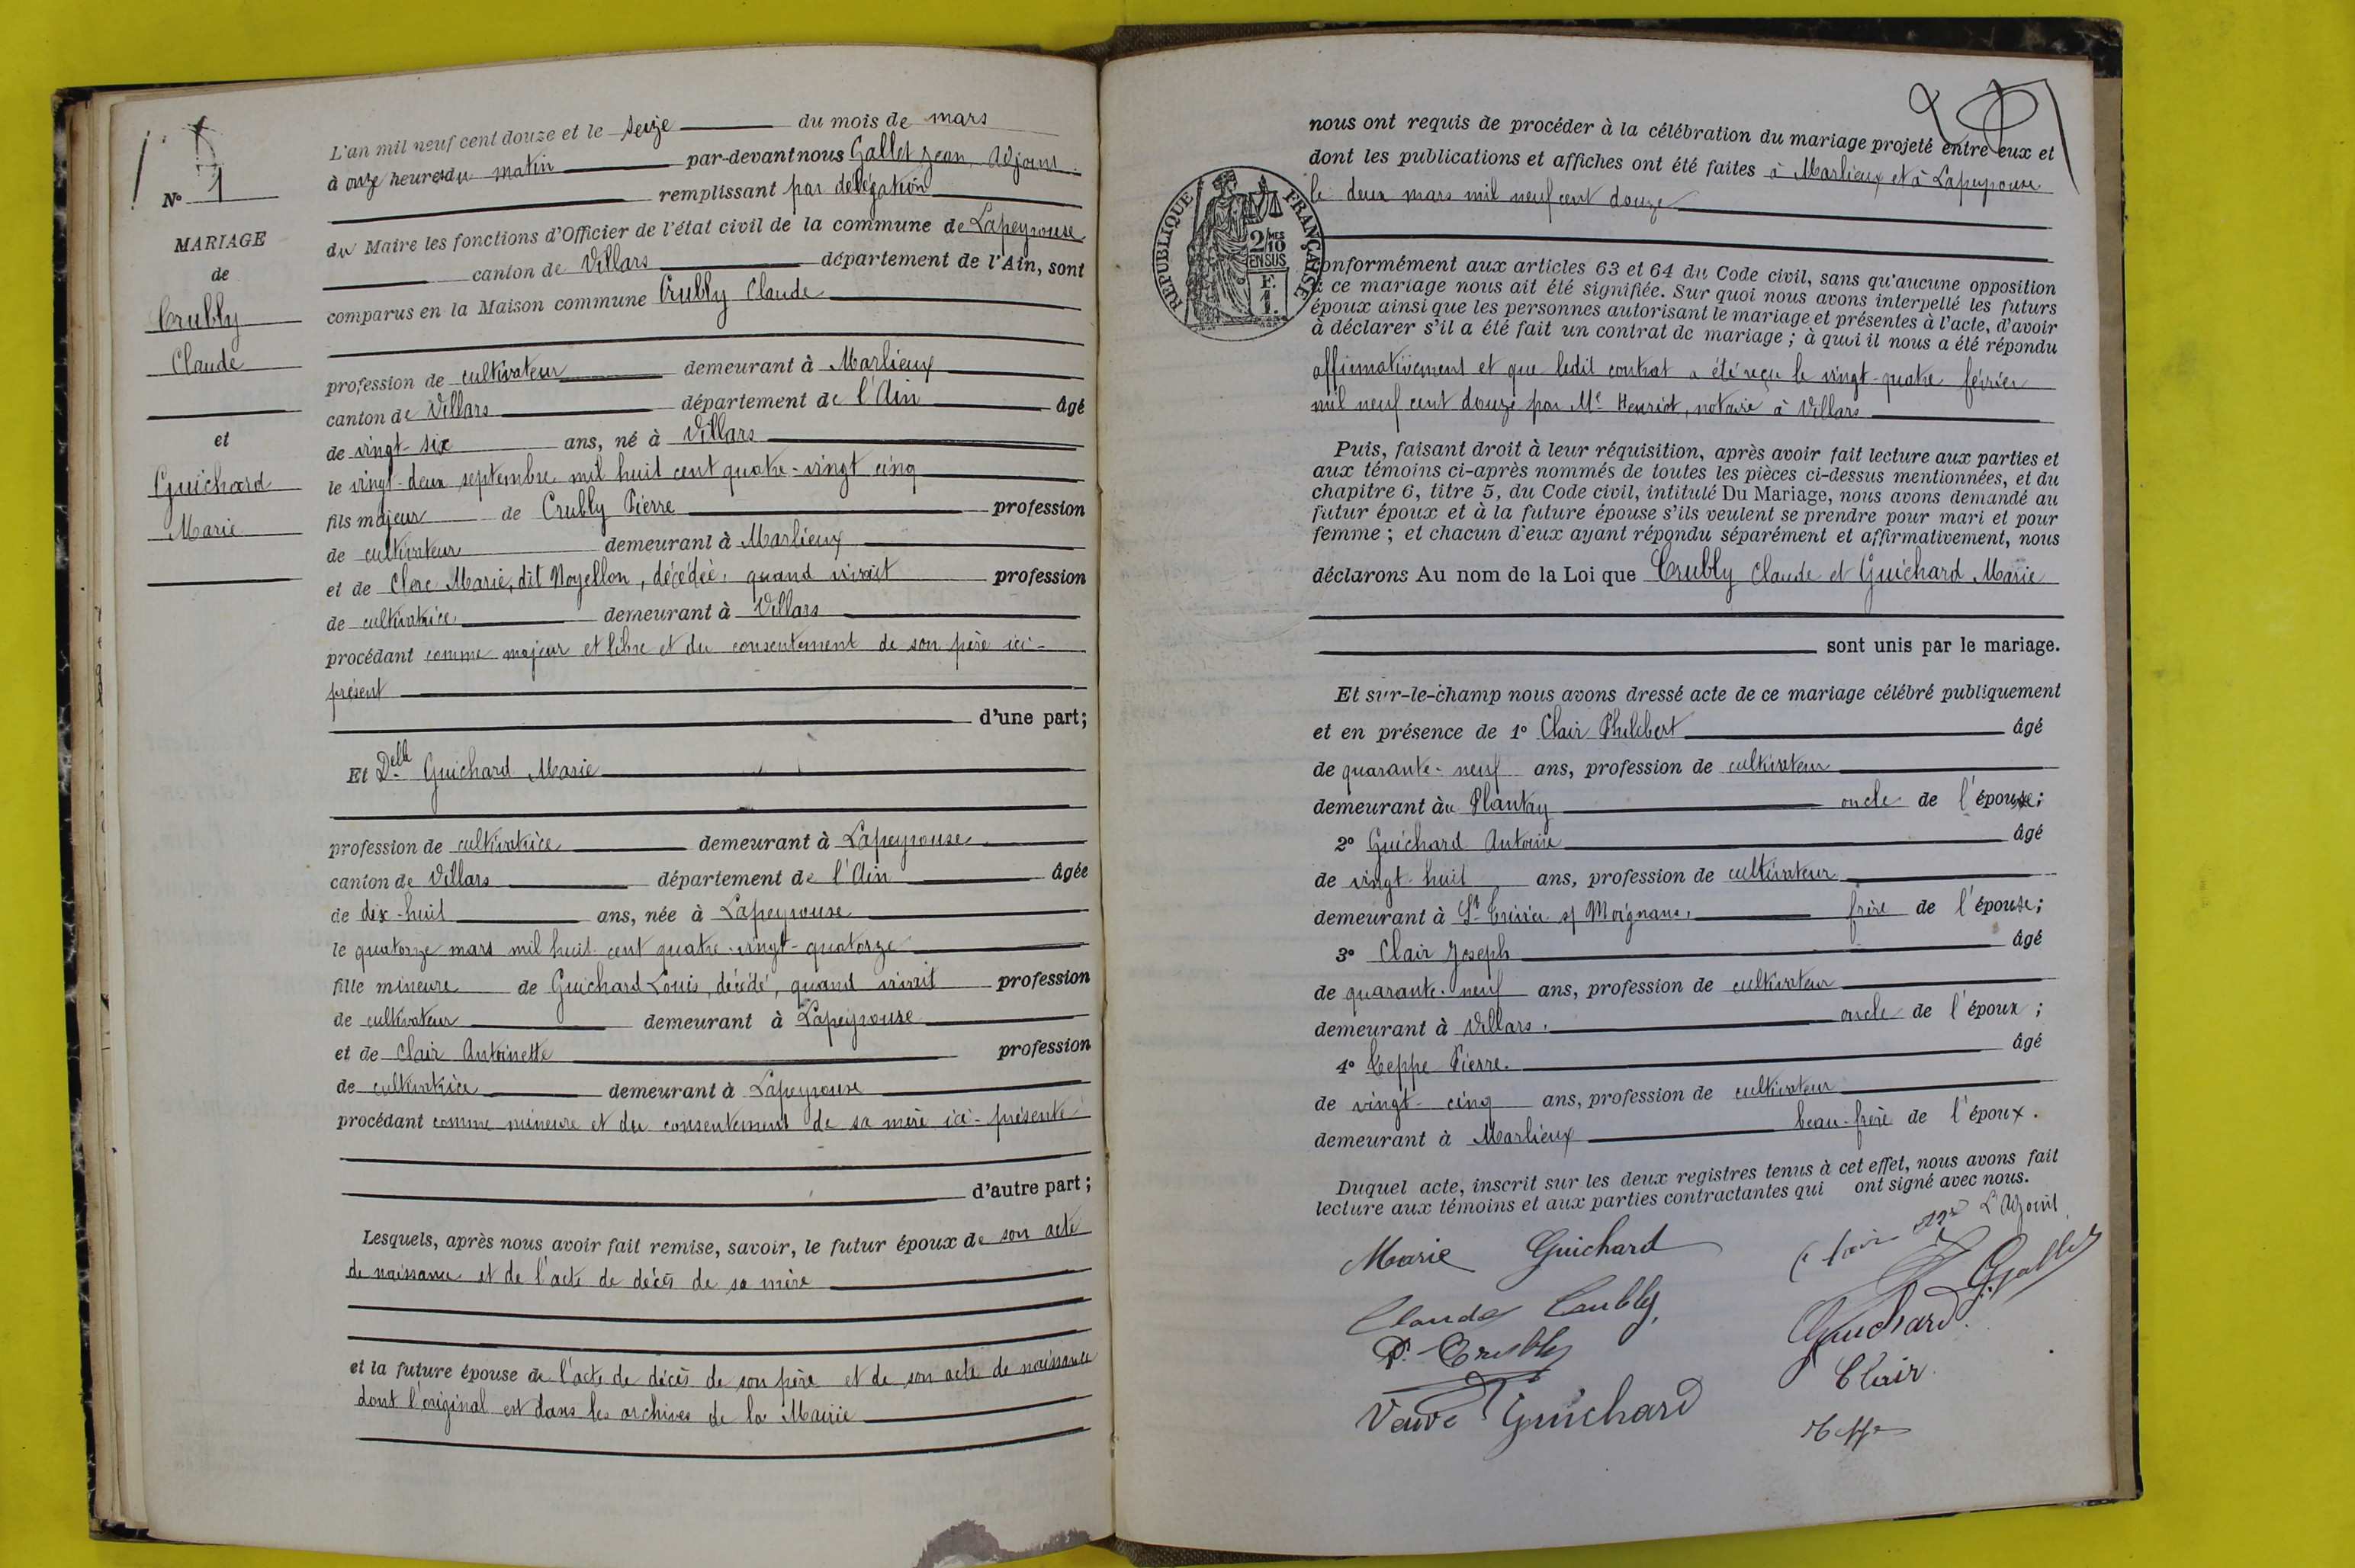 N° 1
MARIAGE
de
Crubly
Claude
et
Guichard
Marie
L'an mil neuf cent douze et le seize du mois de mars
à onze heures du matin par-devant nous Gallet Jean, Adjoint
remplissant par délégation
du Maire les fonctions d'Officier de l'état civil de la commune de Lapeyrouse
canton de Villars département de l'Ain, sont
comparus en la Maison commune Crubly Claude
profession de cultivateur demeurant à Marlieux
canton de Villars département de l'Ain âgé
de vingt-six ans, né à Villars
le vingt-deux septembre mil huit cent quatre-vingt cinq
fils majeur de Crubly Pierre profession
de cultivateur demeurant à Marlieux
et de Clerc Marie, dit Noyellon, décédée, quand vivait profession
de cultivatrice demeurant à Villars
procédant comme majeur et libre et du consentement de son père ici-
présent
d'une part;
Et Delle Guichard Marie
profession de cultivatrice demeurant à Lapeyrouse
canton de Villars département de l'Ain âgée
de dix-huit ans, née à Lapeyrouse
le quatorze mars mil huit cent quatre-vingt-quatorze
fille mineure de Guichard Louis, décédé, quand vivait profession
de cultivateur demeurant à Lapeyrouse
et de Clair Antoinette profession
de cultivatrice demeurant à Lapeyrouse
procédant comme mineure et du consentement de sa mère ici-présente
d'autre part;
Lesquels, après nous avoir fait remise, savoir, le futur époux de son acte
de naissance et de l'acte de décès de sa mère
et la future épouse de l'acte de décès de son père et de son acte de naissance
dont l'original est dans les archives de la Mairie
nous ont requis de procéder à la célébration du mariage projeté entre eux et
dont les publications et affiches ont été faites à Marlieux et à Lapeyrouse
le deux mars mil neuf cent douze
RÉPUBLIQUE FRANÇAISE
2 MES
10
EN SUS
F.
1.
conformément aux articles 63 et 64 du Code civil, sans qu'aucune opposition
à ce mariage nous ait été signifiée. Sur quoi nous avons interpellé les futurs
époux ainsi que les personnes autorisant le mariage et présentes à l'acte, d'avoir
à déclarer s'il a été fait un contrat de mariage; à quoi il nous a été répondu
affirmativement et que ledit contrat a été reçu le vingt-quatre février
mil neuf cent douze par Me Henriot, notaire à Villars
Puis, faisant droit à leur réquisition, après avoir fait lecture aux parties et
aux témoins ci-après nommés de toutes les pièces ci-dessus mentionnées, et du
chapitre 6, titre 5, du Code civil, intitulé Du Mariage, nous avons demandé au
futur époux et à la future épouse s'ils veulent se prendre pour mari et pour
femme; et chacun d'eux ayant répondu séparément et affirmativement, nous
déclarons Au nom de la Loi que Crubly Claude et Guichard Marie
sont unis par le mariage.
Et sur-le-champ nous avons dressé acte de ce mariage célébré publiquement
et en présence de 1° Clair Philebert âgé
de quarante-neuf ans, profession de cultivateur
demeurant au Plantay oncle de l'épouse;
2° Guichard Antoine âgé
de vingt-huit ans, profession de cultivateur
demeurant à St Trivier s/ Moignans, frère de l'épouse;
3° Clair Joseph âgé
de quarante-neuf ans, profession de cultivateur
demeurant à Villars. oncle de l'époux;
4° Teppe Pierre. âgé
de vingt-cinq ans, profession de cultivateur
demeurant à Marlieux beau-frère de l'époux.
Duquel acte, inscrit sur les deux registres tenus à cet effet, nous avons fait
lecture aux témoins et aux parties contractantes qui ont signé avec nous.
L'Adjoint
Marie Guichard
Gallet
Claude Crubly,
Guichard
P. Crubly
Clair
Veuve Guichard
Teppe